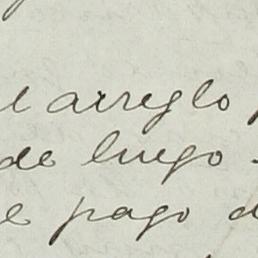 el arreglo
de luego
el pago d